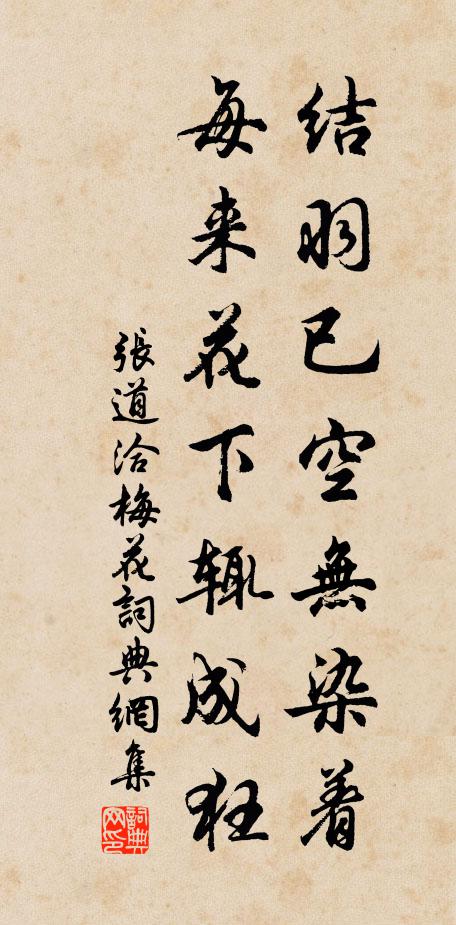 结羽已空無染着
每来花下辄成狂
張道洽梅花詞典網集
詞典网印